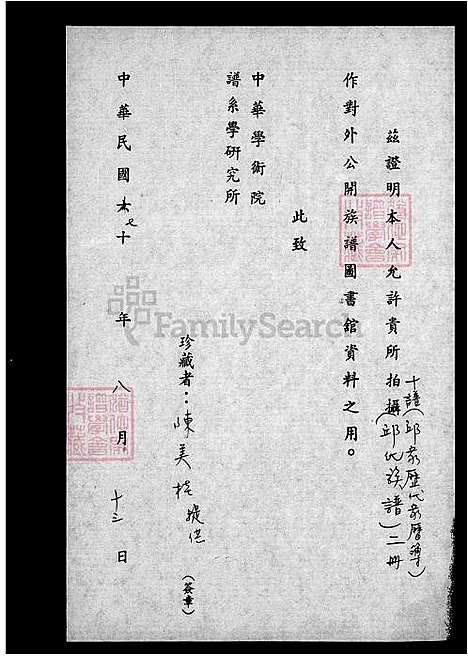 茲證明本人允許貴所拍攝(邱氏族譜)二冊
十譜(邱家歷代家曆簿)
作對外公開族譜圖書館資料之用。
此致
中華學術院
譜系學研究所
珍藏者：陳美桂 提供 (簽章)
中華民國七十年八月十三日
FamilySearch